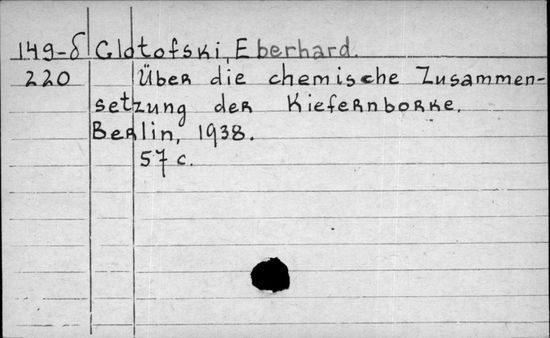 149-δ Glotofski, Eberhard.
220 Über die chemische Zusammen-
setzung der Kiefernborke.
Berlin, 1938.
57 c.